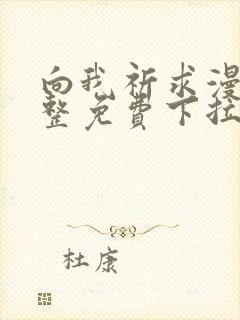 向我祈求漫
整免费下拉
杜康